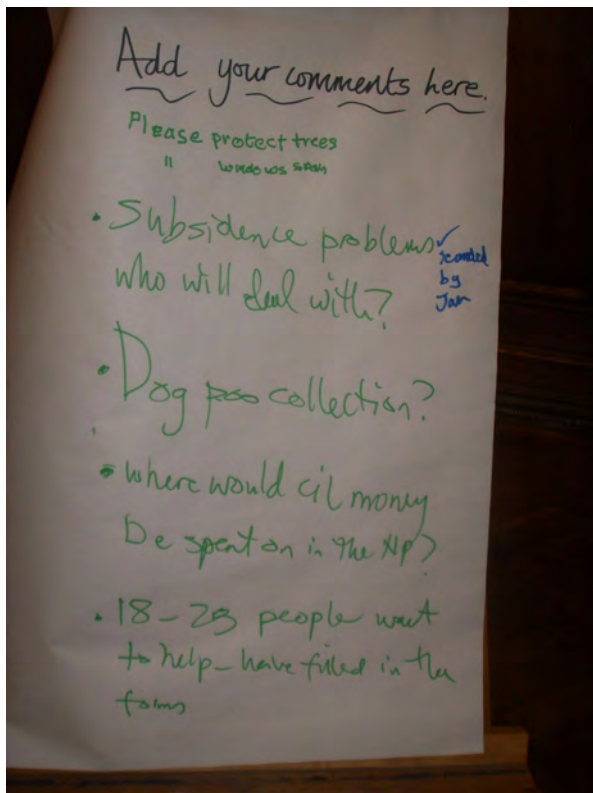 Add your comments here.
Please protect trees
" windows
• Subsidence problems ✓
who will deal with?
by
Jan
• Dog poo collection?
• where would cil money
be spent on in the NP?
• 18-25 people want
to help - have filled in the
forms